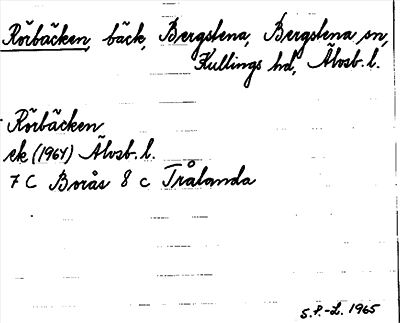 Rörbäcken, bäck, Bergstena, Bergstena sn,
Kullings hd, Älvsb. l.
Rörbäcken
ek (1964) Älvsb. l.
7 C Borås 8 c Trålanda
S.P.-L. 1965